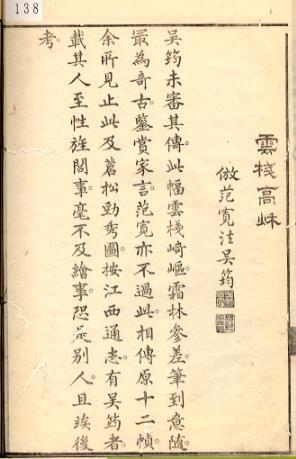 138
雲棧高秋
倣范寬法吳筠
吳筠未審其傳。此幅雲棧崎嶇。霜林參差。筆到意隨。
最為奇古。鑒賞家言。范寬亦不過此。相傳原十二幀。
余所見止此及蒼松勁秀圖。按江西通志有吳筠者。
載其人至性旌閭事。毫不及繪事。恐是別人。且竢後
考。